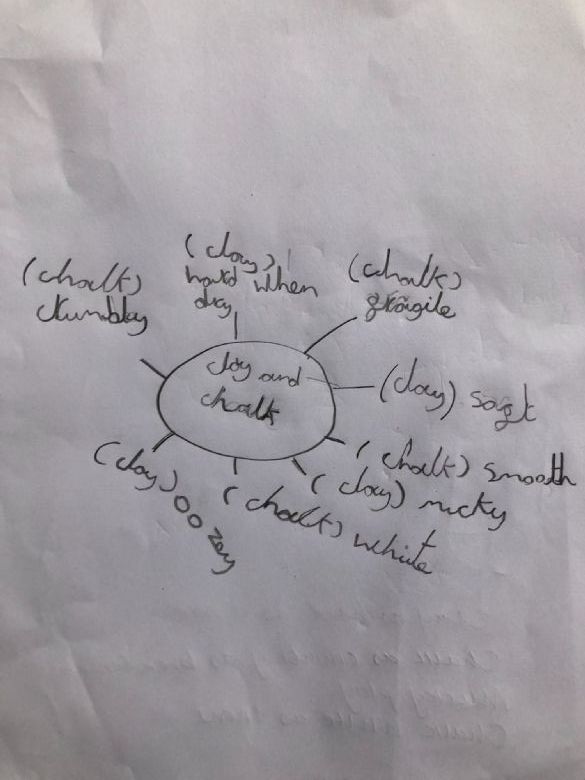 (chalk)
crumbley
(clay)
hard when
dry
(chalk)
fragile
clay and
chalk
(clay) soft
(chalk) smooth
(clay) mucky
(chalk) white
(clay) oozey